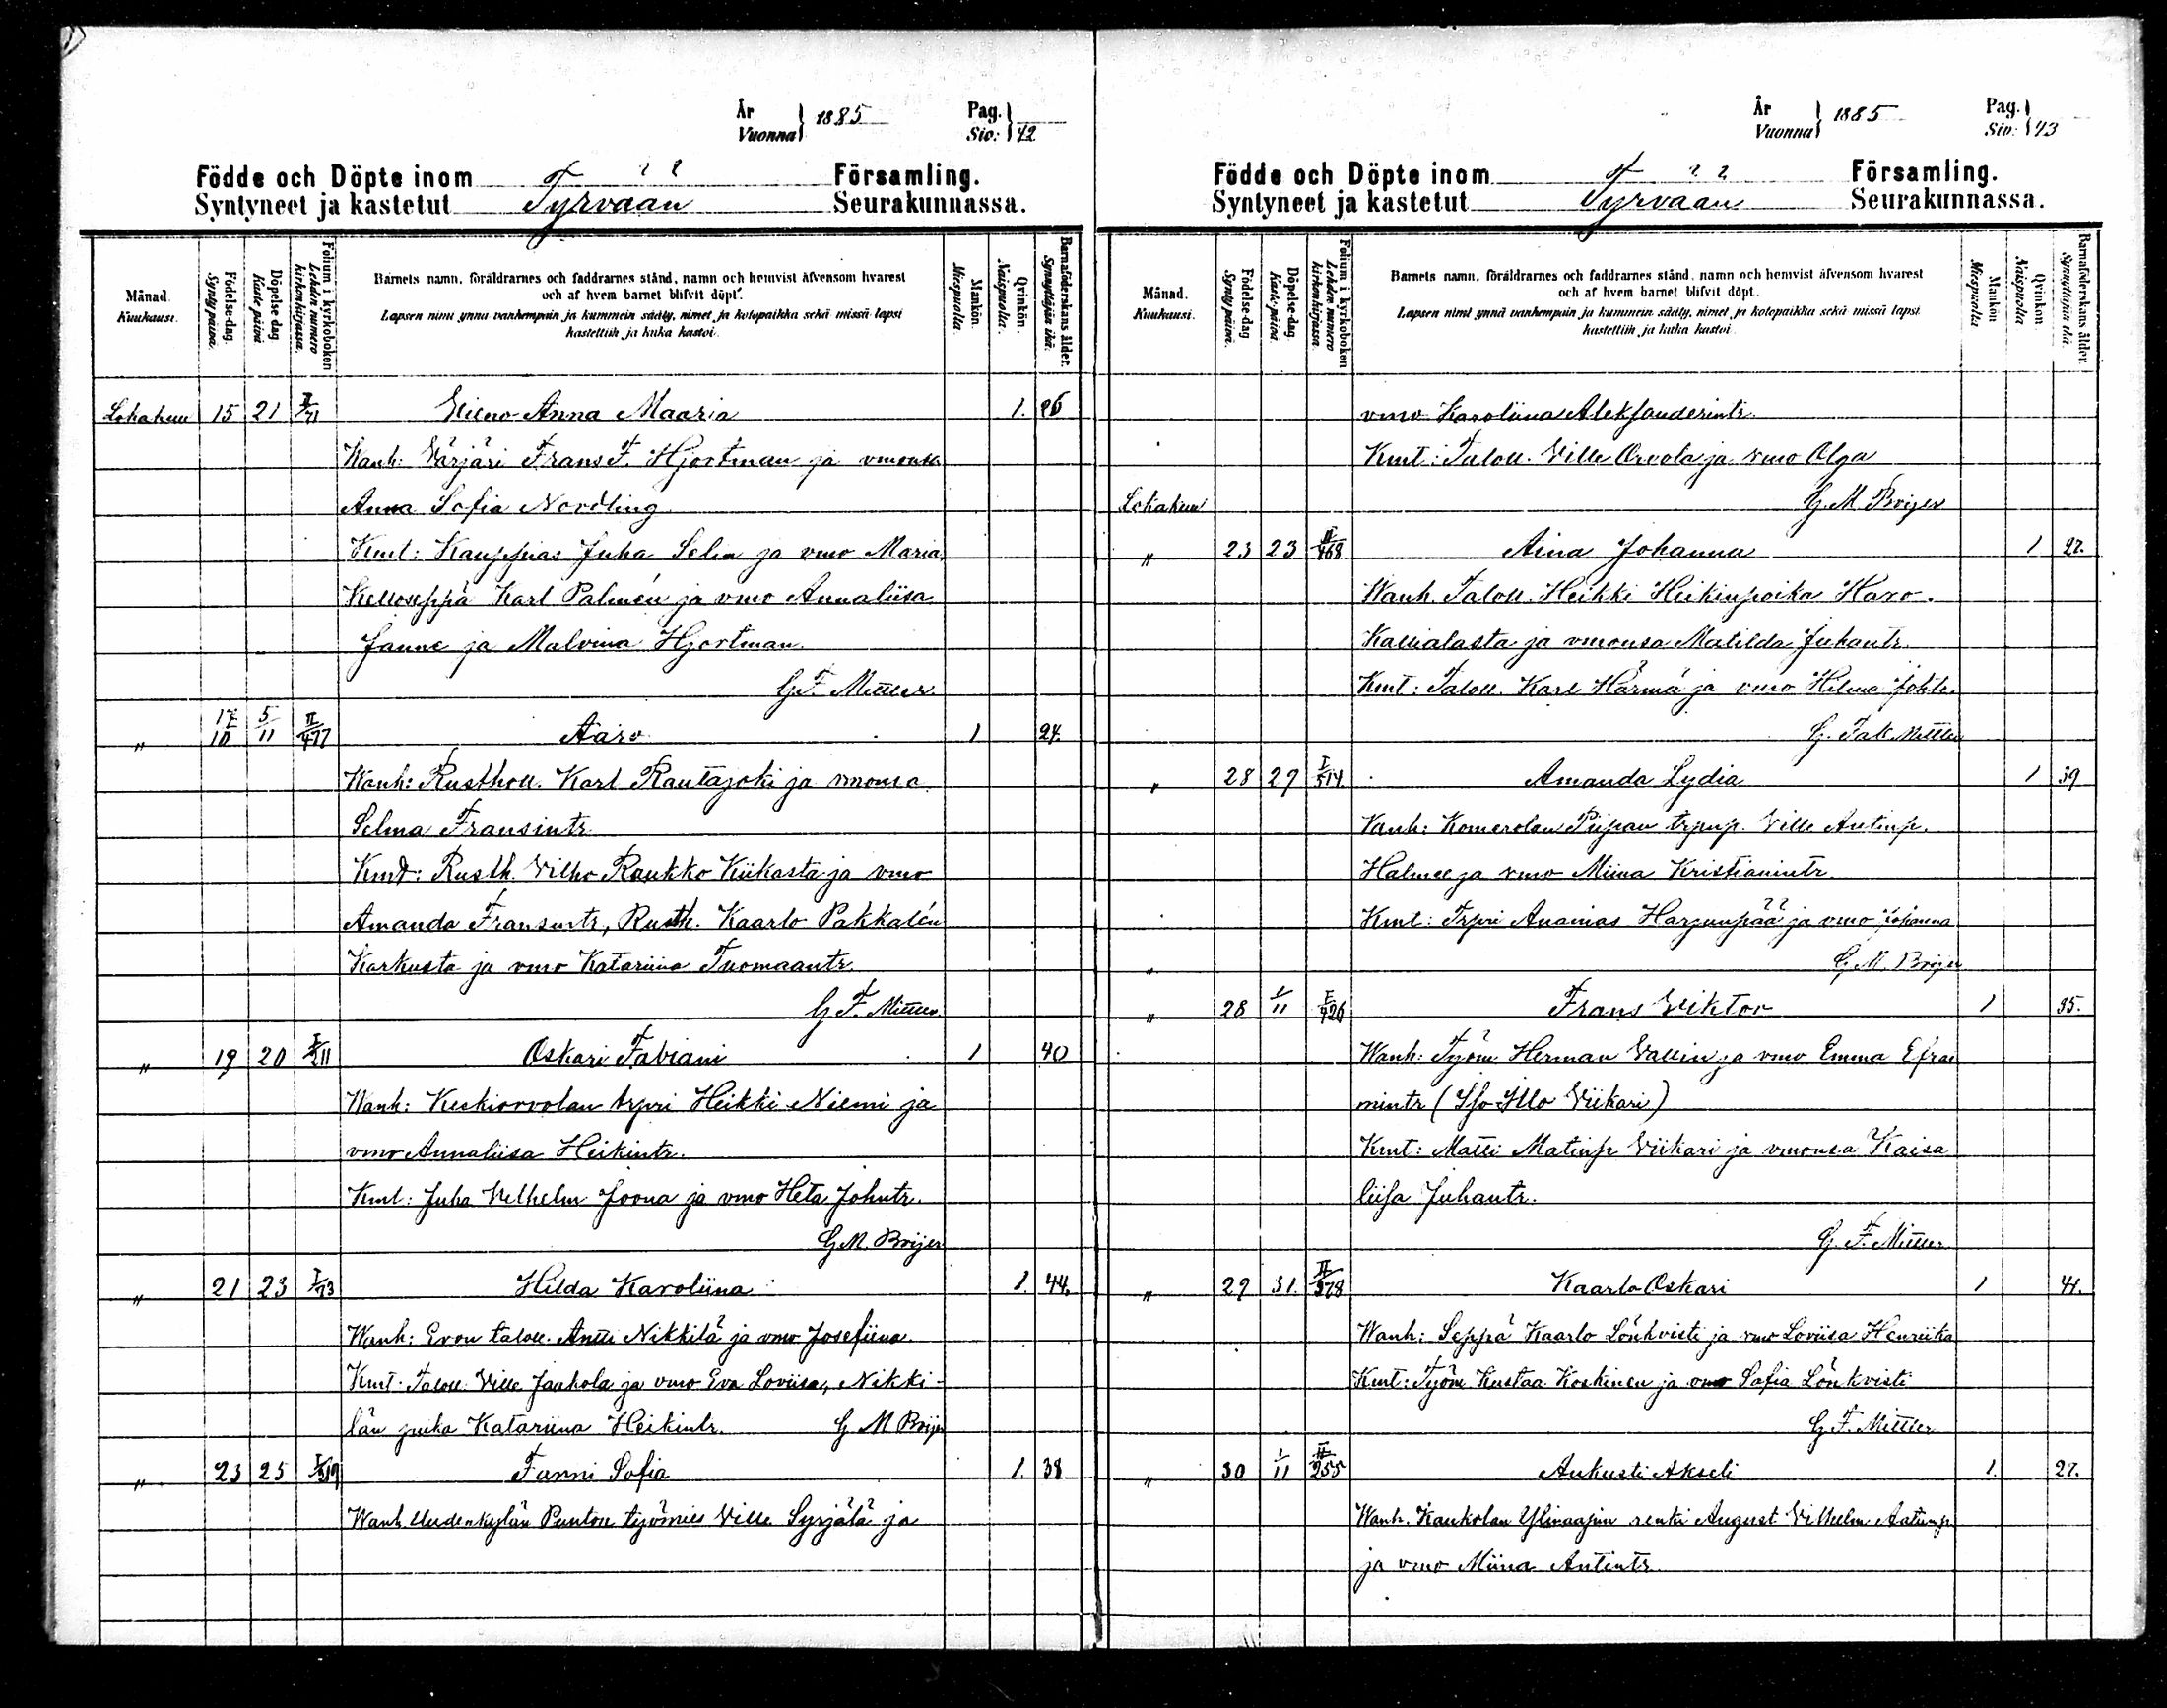 År
Vuonna } 1885
Pag.
Siv: } 42
Födde och Döpte inom Församling.
Syntyneet ja kastetut Tyrvään Seurakunnassa.
Månad. Kuukausi.
Födelse-dag. Syntypäivä.
Döpelse dag Kaste päivä
Folium i kyrkoboken Lehden numero kirkonkirjassa.
Barnets namn, föräldrarnes och faddrarnes stånd, namn och hemvist äfvensom hvarest
och af hvem barnet blifvit döpt.
Lapsen nimi ynnä vanhempain ja kummein sääty, nimet ja kotopaikka sekä missä lapsi
kastettiin ja kuka kastoi.
Mankön. Miespuolta.
Qvinkön. Naispuolta.
Barnaföderskans ålder. Synnyttäjän ikä.
Lokakuu 15 21 I/71 Anna Maaria 1. 26
Wanh: Värjäri Frans F. Hjortman ja vmonsa
Anna Sofia Nordling
Kmt: Kauppias Juha Selin ja vmo Maria,
Kelloseppä Karl Palmén ja vmo Annaliisa
Janne ja Malvina Hjortman
G F. Mittler
" 17/10 5/11 II/477 Aaro 1 24.
Wanh: Rusthol. Karl Rautajoki ja vmonsa
Selma Fransintr
Kmt: Rusth. Vilho Raukko Kiikasta ja vmo
Amanda Fransintr, Rusth. Kaarlo Pakkalén
Karkusta ja vmo Katariina Tuomaantr.
G F. Mittler
" 19 20 I/211 Oskari Fabiani 1 40
Wanh: Keskiorvolan trpri Heikki Niemi ja
vmo Annaliisa Heikintr.
Kmt: Juha Vilhelm Joona ja vmo Heta Johntr.
G M. Brijer
" 21 23 I/73 Hilda Karoliina 1. 44.
Wanh: Evon taloll. Antti Nikkilä ja vmo Josefiina.
Kmt. Taloll. Ville Jaakola ja vmo Eva Loviisa, Nikki-
län piika Katariina Heikintr. G M Brijer
" 23 25 I/519 Fanni Sofia 1. 38
Wanh. Uudenkylän Puntou työmies Ville Syrjälä ja
År
Vuonna } 1885
Pag.
Siv: } 43
Födde och Döpte inom Församling.
Syntyneet ja kastetut Tyrvään Seurakunnassa.
Månad. Kuukausi.
Födelse-dag Syntypäivä.
Döpelse-dag Kaste-päivä
Folium i kyrkoboken Lehden numero kirkonkirjassa.
Barnets namn, föräldrarnes och faddrarnes stånd, namn och hemvist äfvensom hvarest
och af hvem barnet blifvit döpt.
Lapsen nimi ynnä vanhempain ja kummein sääty, nimet ja kotopaikka sekä missä lapsi
kastettiin ja kuka kastoi.
Mankön Miespuolta
Qvinkön. Naispuolta
Barnaföderskans ålder. Synnyttäjän ikä.
vmo Karoliina Aleksanderintr.
Kmt: Taloll. Ville Orvola ja vmo Olga
Lokakuu G. M Brijer
" 23 23 II/468 Aina Johanna 1 27.
Wanh. Taloll. Heikki Heikinpoika Haro.
Kallialasta ja vmonsa Matilda Juhantr.
Kmt: Taloll. Karl Härmä ja vmo Hilma
G. F. Mittler
" 28 29 I/514. Amanda Lydia 1 39
Vanh: Komerolan Piipan Ville Antinp.
Halmee ja vmo Miina Kristianintr.
Kmt: Trpri Ananias Harjunpää ja vmo Johanna
" G. M. Brijer
" 28 1/11 I/426 Frans Viktor 1 35.
Wanh: Työm Herman Vallin ja vmo Emma Efrai
mintr (Iso-Illo Viikari)
Kmt: Matti Matinp Viikari ja vmonsa Kaisa
liisa Juhantr.
G. F. Mittler
" 29 31. II/378 Kaarlo Oskari 1 41.
Wanh: Seppä Kaarlo Lönkvisti ja vmo Loviisa Henriika
Kmt: Työm Kustaa Koskinen ja vmo Sofia Lönkvisti
G F. Mittler
" 30 1/11 II/255 Aukusti Akseli 1. 27.
Wanh. Kaukolan Ylinaajin renki August Vilhelm Aatunp.
ja vmo Miina Antintr.